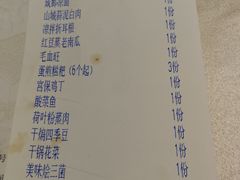 成都凉面 1份
山城蒜泥白肉 1份
凉拌折耳根 1份
红豆蒸老南瓜 1份
毛血旺 1份
蛋煎糍粑(6个起) 3份
宫保鸡丁 1份
酸菜鱼 1份
荷叶粉蒸肉 1份
干煸四季豆 1份
干锅花菜 1份
美味烩三菌 1份